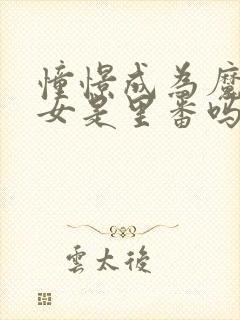 憧憬成為魔
女是里番吗
雲太後